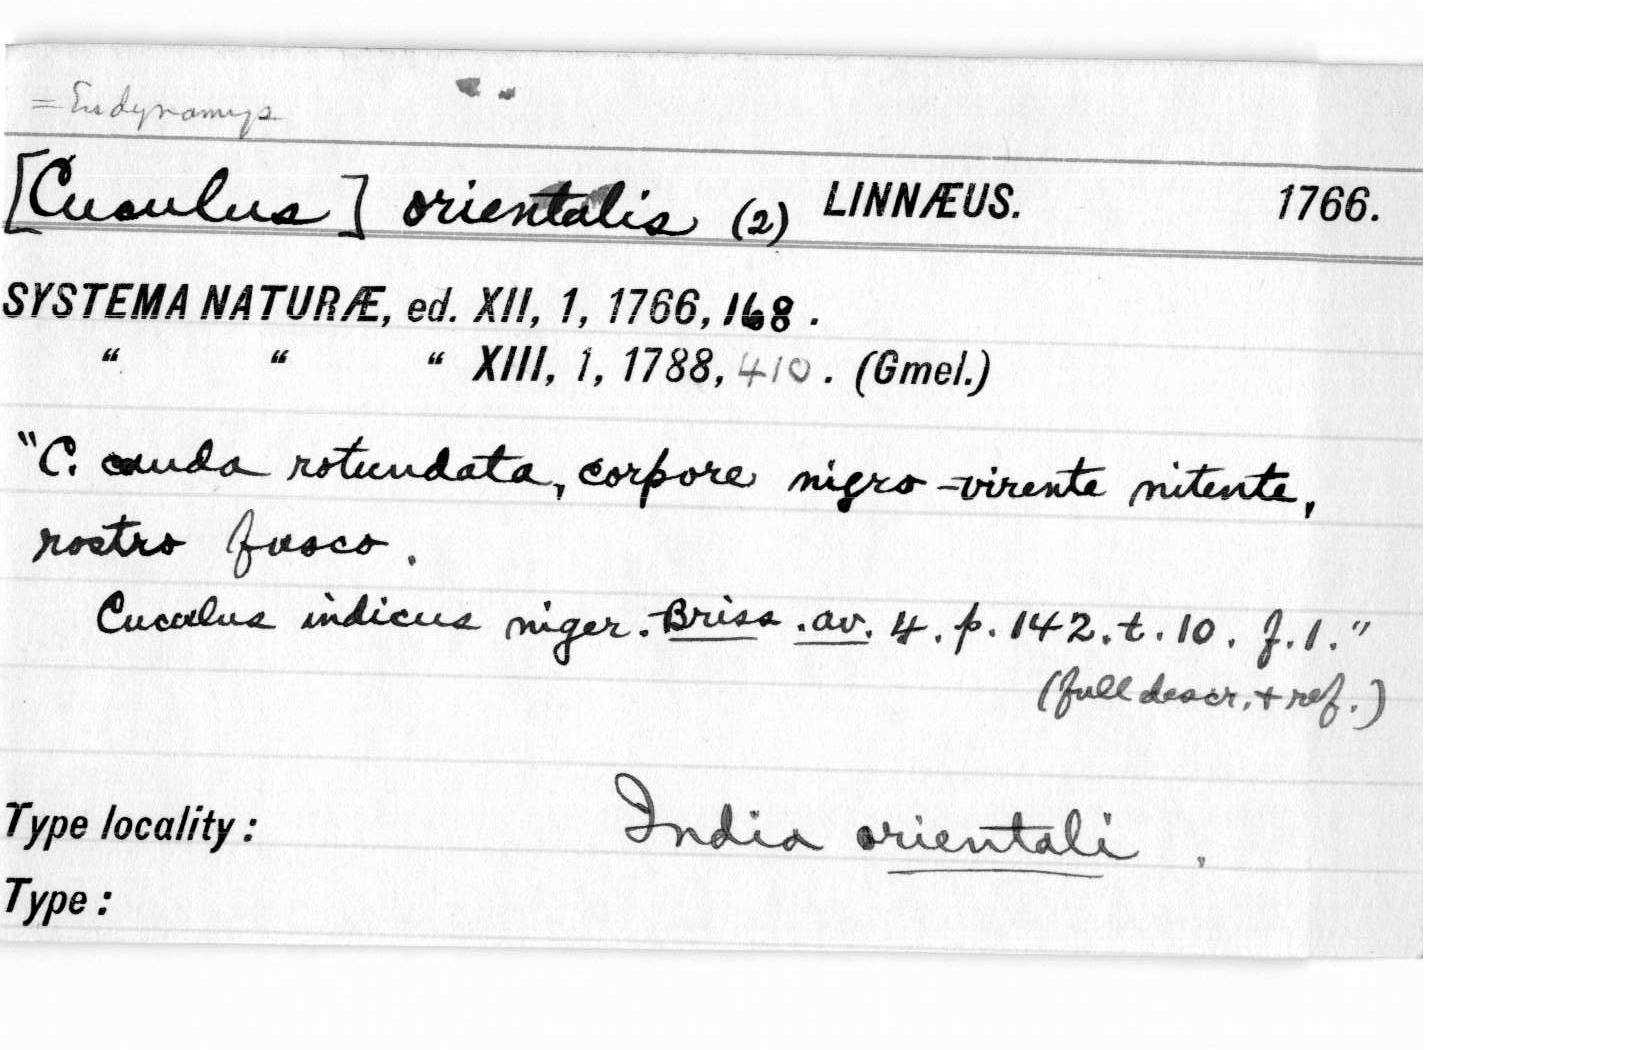 = Eudynamys
[Cuculus] orientalis (2) LINNÆUS. 1766.
SYSTEMA NATURÆ, ed. XII, 1, 1766, 168.
“ “ “ XIII, 1, 1788, 410. (Gmel.)
"C. cauda rotundata, corpore nigro-virente nitente,
rostro fusco.
Cuculus indicus niger. Briss. av. 4. p. 142. t. 10. f. 1."
(full descr. + ref.)
Type locality: India orientali.
Type: